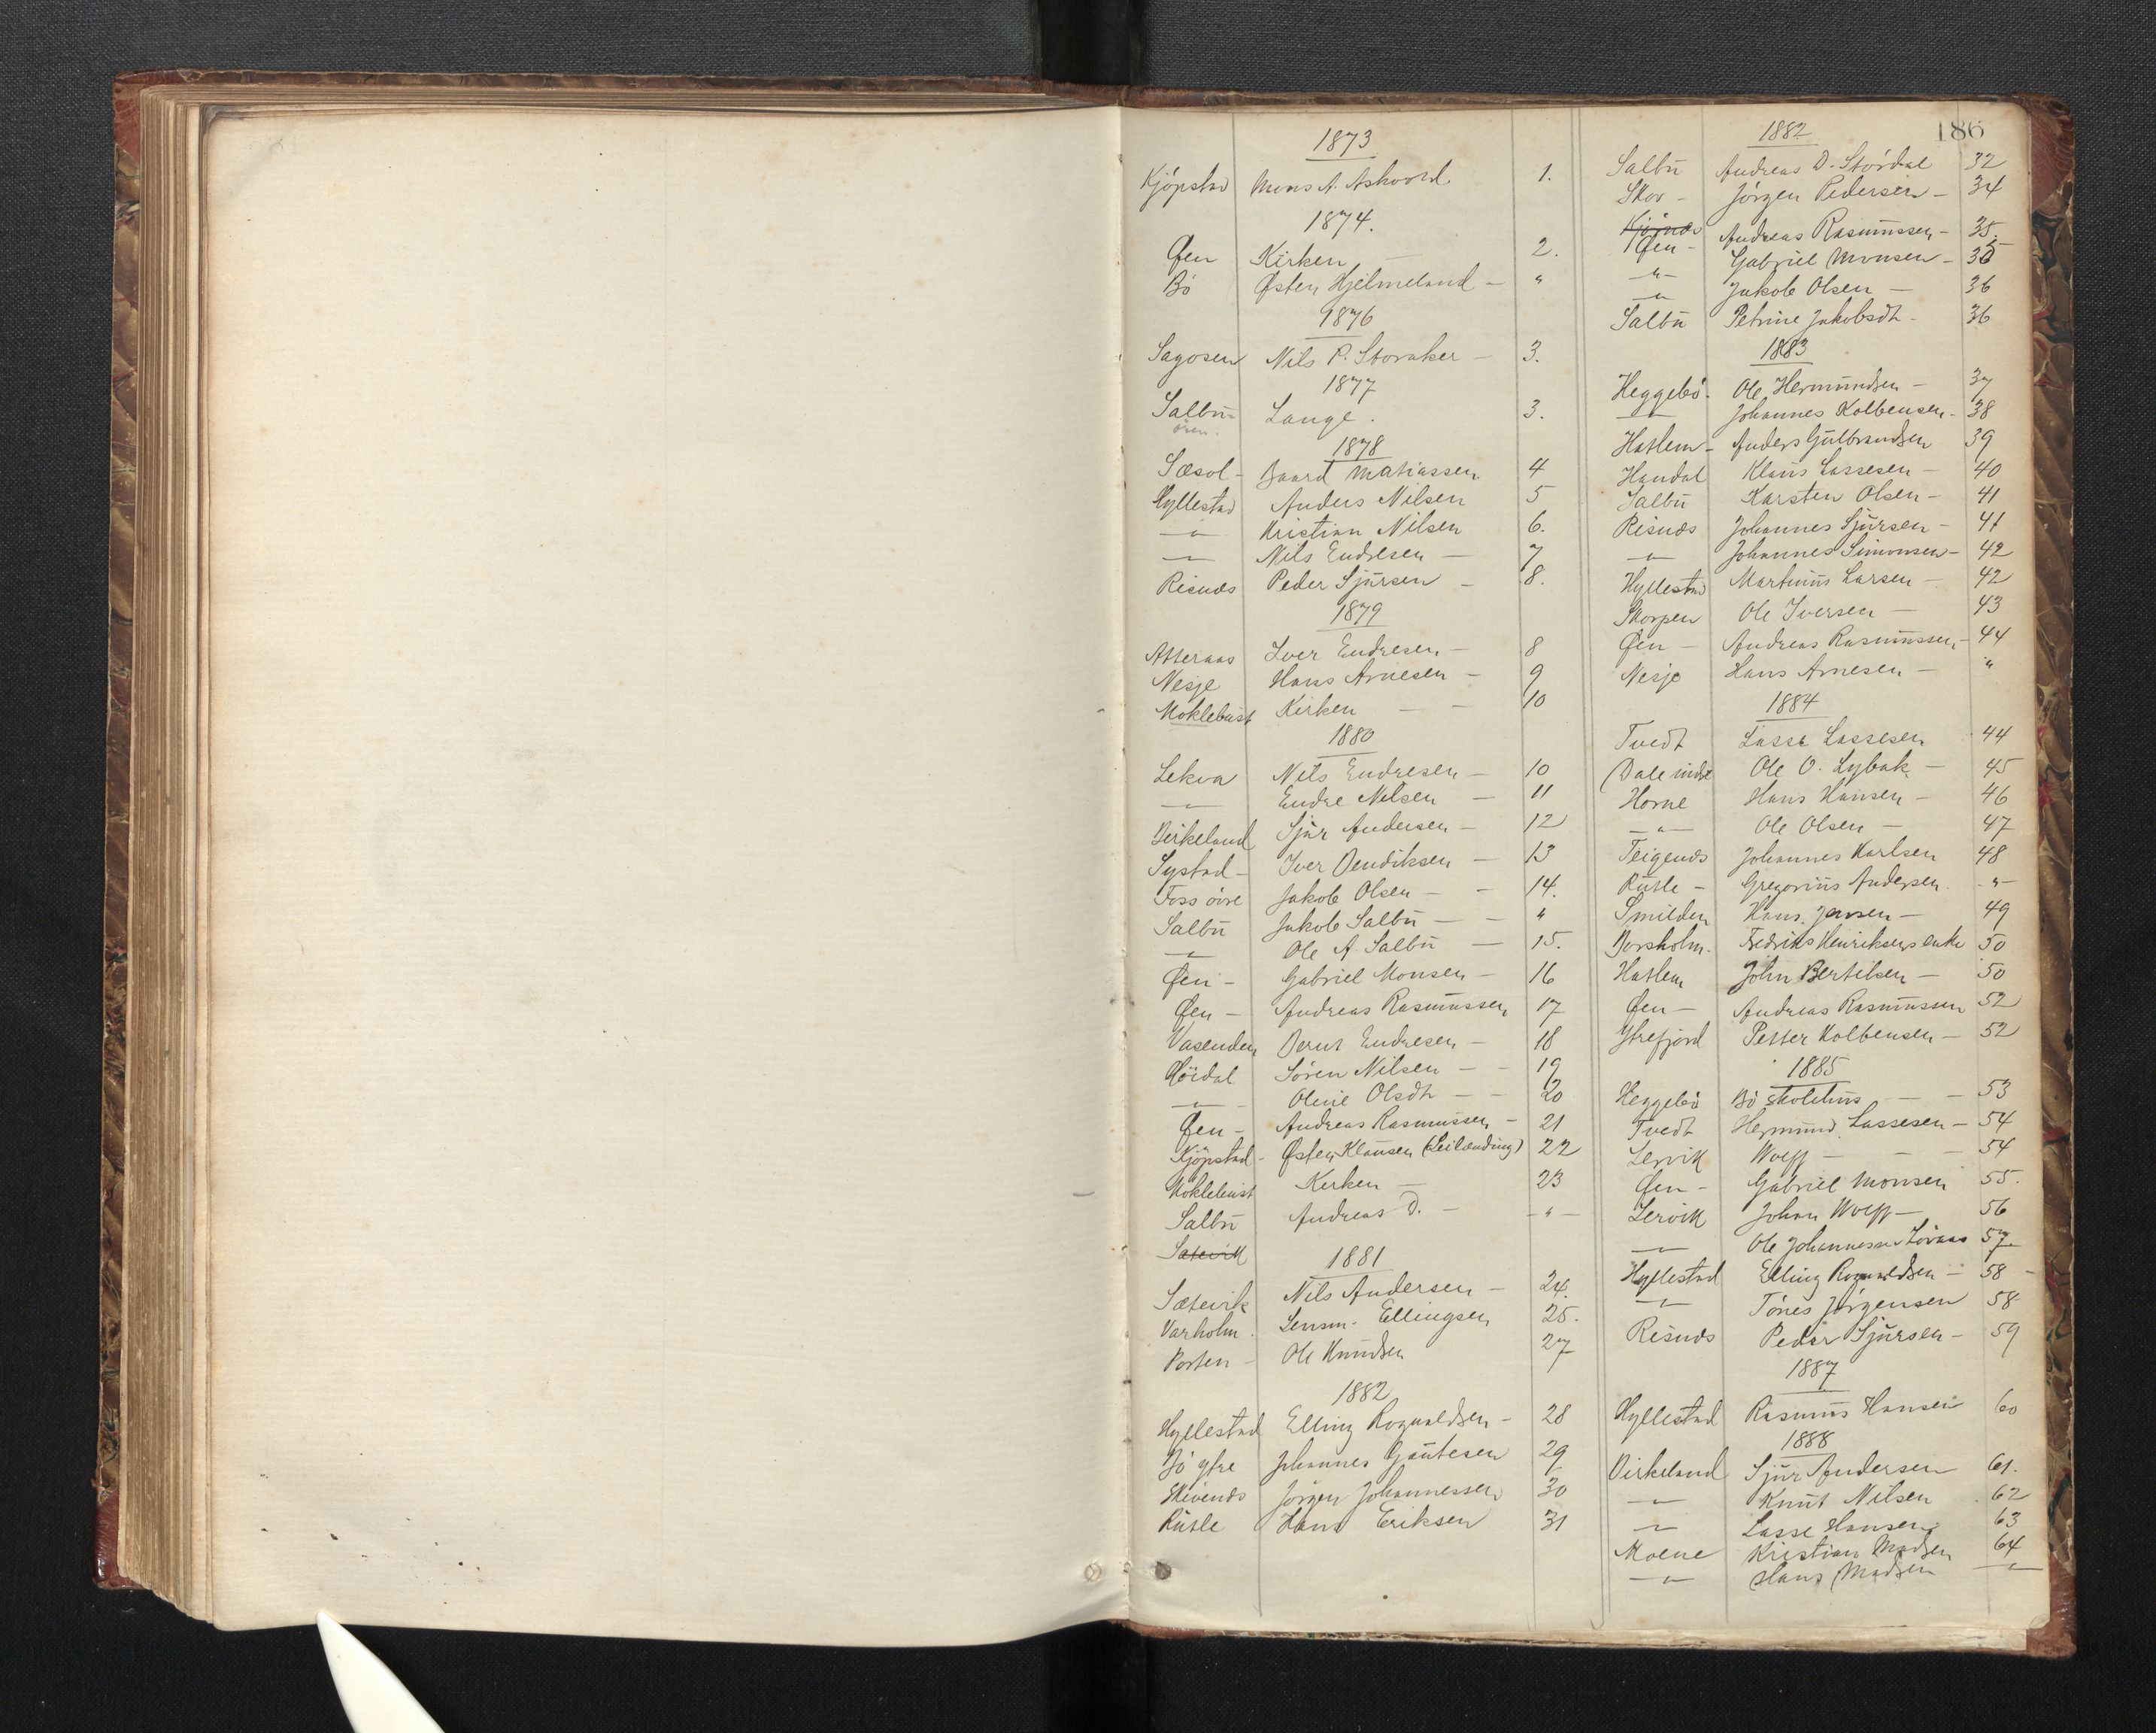 186
1873
Kjöpstad Mons A. Askvord 1.
1874.
Øen Kirken — 2.
Bö Østen Hjelmeland — "
1876
Sagosen Nils P. Storaker — 3.
1877
Salbu- Lange. 3.
ören.
1878
Sæsol - Baard Matiassen 4
Hyllestad Anders Nilsen 5
—"— Kristian Nilsen 6.
—"— Nils Endresen — 7
Risnæs Peder Sjursen — 8.
1879
Atteraas Iver Endresen — 8
Nesje Hans Arnesen — 9
Moklebust Kirken — — 10
1880
Lekva Nils Endresen — 10
—"— Endre Nilsen — 11
Birkeland Sjur Andersen — 12
Systad — Iver Bendiksen — 13
Foss öire Jakob Olsen — — 14.
Salbu Jakob Salbu — — "
—"— Ole A Salbu — 15.
Øen — Gabriel Monsen — 16
Øen — Andreas Rasmussen 17
Vasenden Bernt Endresen — 18
Höidal Sören Nilsen — — 19
—"— Oline Olsdt — — 20
Øen — Andreas Rasmussen — 21
Kjöpstad - Østen Klausen (Leilænding) 22
Moklebust Kirken — 23
Salbu Andreas D. — —"—
Satevik
1881
Sætevik Nils Andersen — 24.
Varholm. Lensm. Ellingsen 25.
Porten — Ole Knudsen 27
1882
Hyllestad Elling Rognaldsen — 28
Bö ytre Johannes Gautesen 29
Skivenæs Jörgen Johannessen 30
Rutle Hans Eriksen 31
1882
Salbu Andreas D. Stördal 32
Skor — Jörgen Pedersen — 34
Kjørnæs
Øen — Andreas Rasmussen — 35.
—"— Gabriel Monsen — 35
—"— Jakob Olsen — 36
Salbu Petrine Jakobsdt — 36
1883
Heggebö. Ole Hermundsen — 37
—"— Johannes Kolbensen — 38
Hatlem — Anders Gulbrandsen 39
Handal Klaus Lassesen — 40
Salbu Karsten Olsen — 41
Risnæs Johannes Sjursen — 41
—"— Johannes Simonsen — 42
Hyllestad Martinus Larsen — 42
Skorpen Ole Iversen — 43
Øen — Andreas Rasmussen — 44
Nesje Hans Arnesen — "
1884
Tvedt Lasse Lassesen 44
Dale indre Ole O. Lybak — 45
Horne Hans Hansen — 46
—"— Ole Olsen — 47
Teigenæs Johannes Karlsen 48
Rutle — Gregorius Andersen. —"—
Smilden Hans Jensen — 49
Borsholm. Fredriks Henriksens enke 50
Hatlem John Bertilsen — 50
Øen — Andreas Rasmussen 52
Ytrefjord Petter Kolbensen — 52
1885
Heggebö Bö skolehus — — 53
Tvedt Hermund Lassesen — 54
Lervik Wolff — — — 54
Øen — Gabriel Monsen 55.
Lervik Johan Wolff — 56
—"— Ole Johannessen Lövaas 57
Hyllestad Elling Rognaldsen — 58
—"— Tönes Jörgensen 58
Risnæs Peder Sjursen — 59
1887
Hyllestad Rasmus Hansen 60
1888
Birkeland Sjur Andersen 61.
—"— Knut Nilsen 62
—"— Lasse Hansen 63
Moene Kristian Madsen 64
—"— Hans Madsen —"—